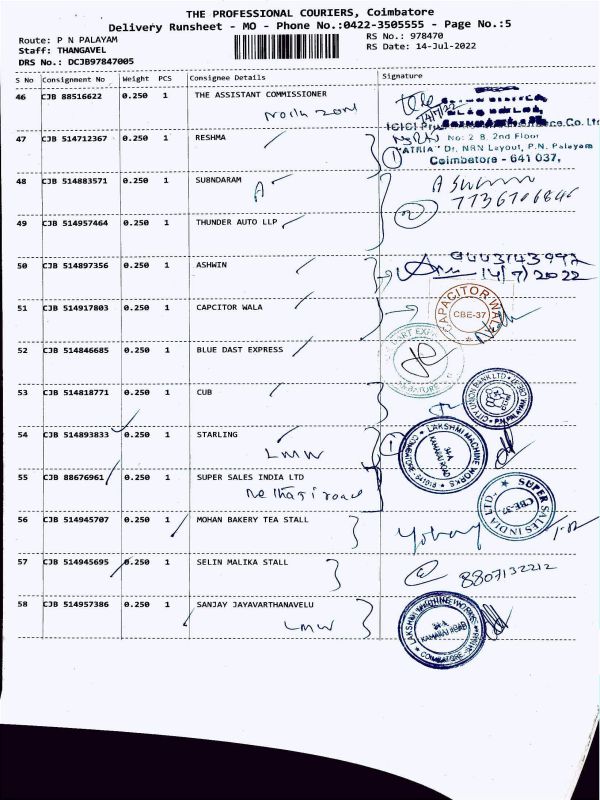 THE PROFESSIONAL COURIERS, Coimbatore
Delivery Runsheet - MO - Phone No.:0422-3505555 - Page No.:5
Route: P N PALAYAM
RS No.: 978470
Staff: THANGAVEL
RS Date: 14-Jul-2022
DRS No.: DCJB97847005
S No Consignment No Weight PCS Consignee Details Signature
46 CJB 88516622 0.250 1 THE ASSISTANT COMMISSIONER
North Zone
14/7/22
47 CJB 514712367 0.250 1 RESHMA
No: 2 B, 2nd Floor
"ATRIA" Dr. NRN Layout, P.N. Palayam
Coimbatore - 641 037.
1
48 CJB 514883571 0.250 1 SUBNDARAM
A
2
49 CJB 514957464 0.250 1 THUNDER AUTO LLP
50 CJB 514897356 0.250 1 ASHWIN
14/7/2022
51 CJB 514917803 0.250 1 CAPCITOR WALA
CAPACITOR WALA
CBE-37
52 CJB 514846685 0.250 1 BLUE DAST EXPRESS
53 CJB 514818771 0.250 1 CUB
CITY UNION BANK LTD
P.N. PALAYAM
54 CJB 514893833 0.250 1 STARLING
LMW
1
LAKSHMI MACHINE WORKS
34-A
KAMARAJ ROAD
55 CJB 88676961 0.250 1 SUPER SALES INDIA LTD
SUPER SALES INDIA LTD
CBE-37
56 CJB 514945707 0.250 1 MOHAN BAKERY TEA STALL
57 CJB 514945695 0.250 1 SELIN MALIKA STALL
8807132212
58 CJB 514957386 0.250 1 SANJAY JAYAVARTHANAVELU
LMW
LAKSHMI MACHINE WORKS
34-A
KAMARAJ ROAD
COIMBATORE